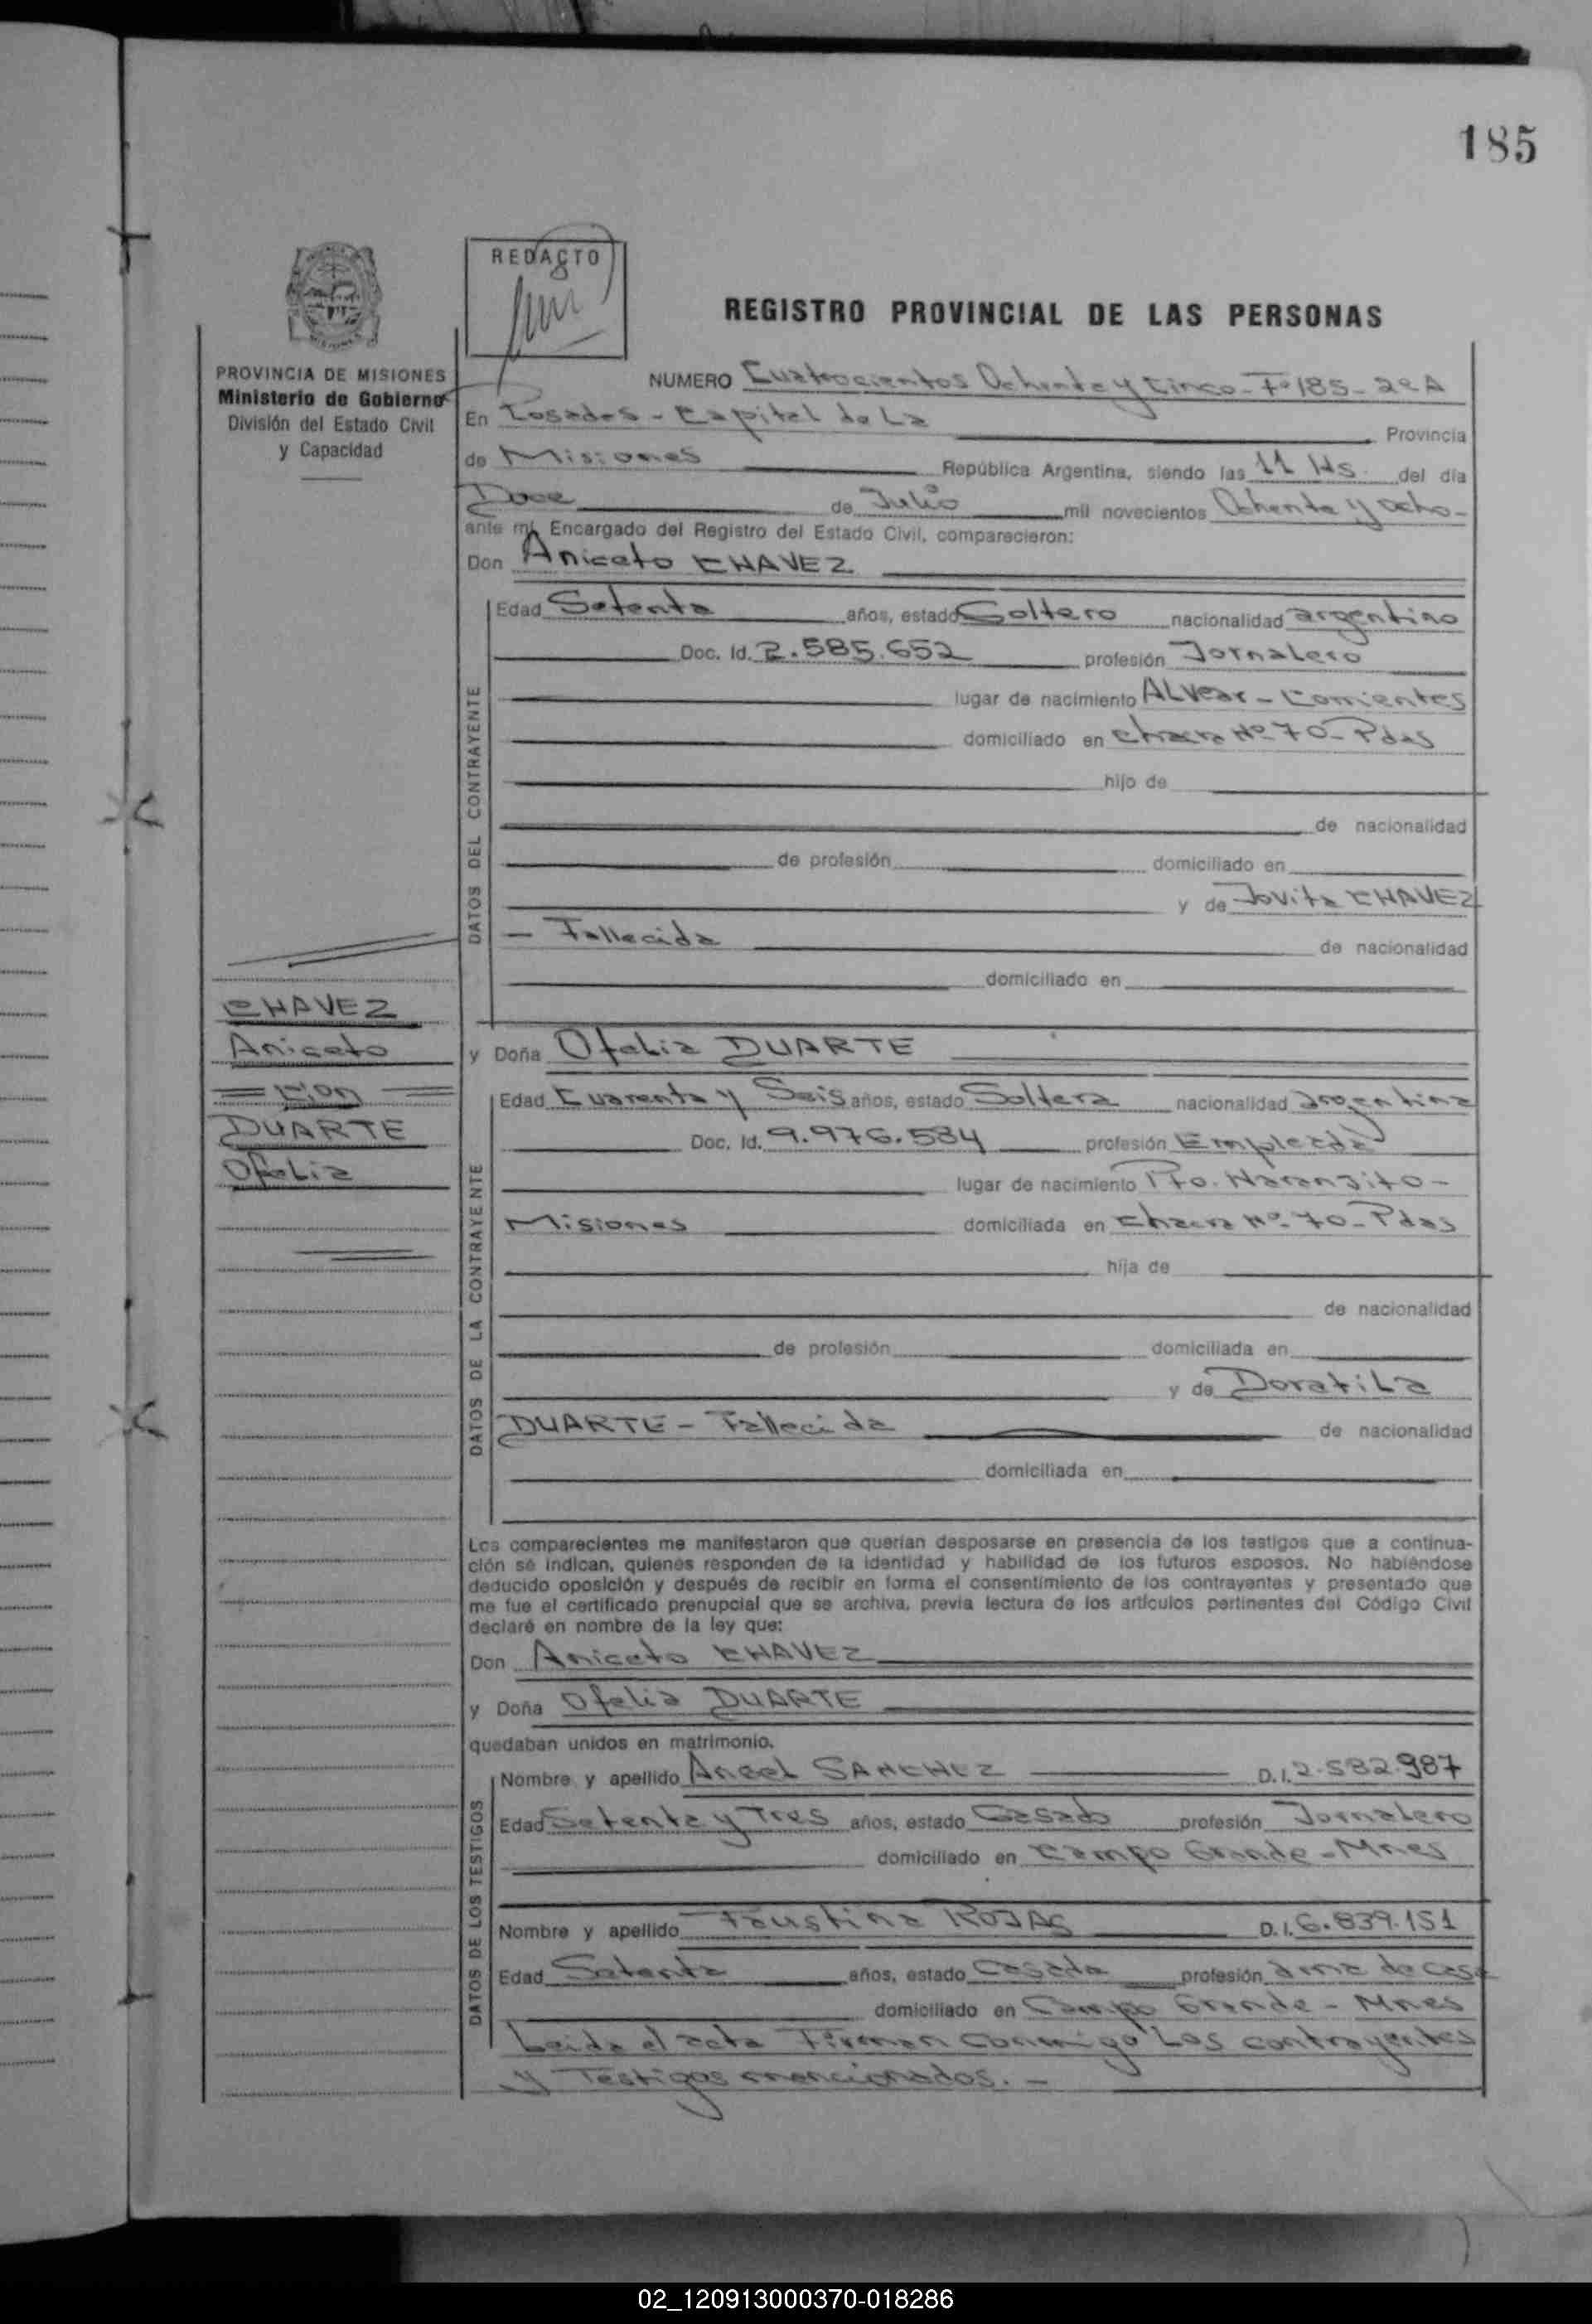 185
REDACTO
REGISTRO PROVINCIAL DE LAS PERSONAS
PROVINCIA DE MISIONES
Ministerio de Gobierno
División del Estado Civil
y Capacidad
NUMERO Cuatrocientos Ochenta y Cinco - Fº 185 - 2º A
En Posadas - Capital de La Provincia
de Misiones República Argentina, siendo las 11 Hs. del día
Doce de Julio mil novecientos Ochenta y ocho -
ante mí, Encargado del Registro del Estado Civil, comparecieron:
Don Aniceto CHAVEZ
DATOS DEL CONTRAYENTE
Edad Setenta años, estado Soltero nacionalidad argentino
Doc. Id. 2.585.652 profesión Jornalero
lugar de nacimiento ALvear - Corrientes
domiciliado en chacra Nº 70 - Pdas
hijo de
de nacionalidad
de profesión domiciliado en
y de Jovita CHAVEZ
- Fallecida de nacionalidad
domiciliado en
CHAVEZ
Aniceto
= con =
DUARTE
Ofelia
y Doña Ofelia DUARTE
DATOS DE LA CONTRAYENTE
Edad Cuarenta y Seis años, estado Soltera nacionalidad argentina
Doc. Id. 9.976.584 profesión Empleada
lugar de nacimiento Pto. Naranjito -
Misiones domiciliada en chacra Nº 70 - Pdas
hija de
de nacionalidad
de profesión domiciliada en
y de Doratila
DUARTE - Fallecida de nacionalidad
domiciliada en
Los comparecientes me manifestaron que querían desposarse en presencia de los testigos que a continua-
ción se indican, quienes responden de la identidad y habilidad de los futuros esposos. No habiéndose
deducido oposición y después de recibir en forma el consentimiento de los contrayentes y presentado que
me fue el certificado prenupcial que se archiva, previa lectura de los artículos pertinentes del Código Civil
declaré en nombre de la ley que:
Don Aniceto CHAVEZ
y Doña Ofelia DUARTE
quedaban unidos en matrimonio.
DATOS DE LOS TESTIGOS
Nombre y apellido Angel SANCHEZ D.I. 2.582.987
Edad Setenta y Tres años, estado Casado profesión Jornalero
domiciliado en Campo Grande - Mnes
Nombre y apellido Faustina ROJAS D.I. 6.839.151
Edad Setenta años, estado Casada profesión ama de casa
domiciliado en Campo Grande - Mnes
Leida el acta Firman conmigo Los contrayentes
y Testigos mencionados. -
02_120913000370-018286